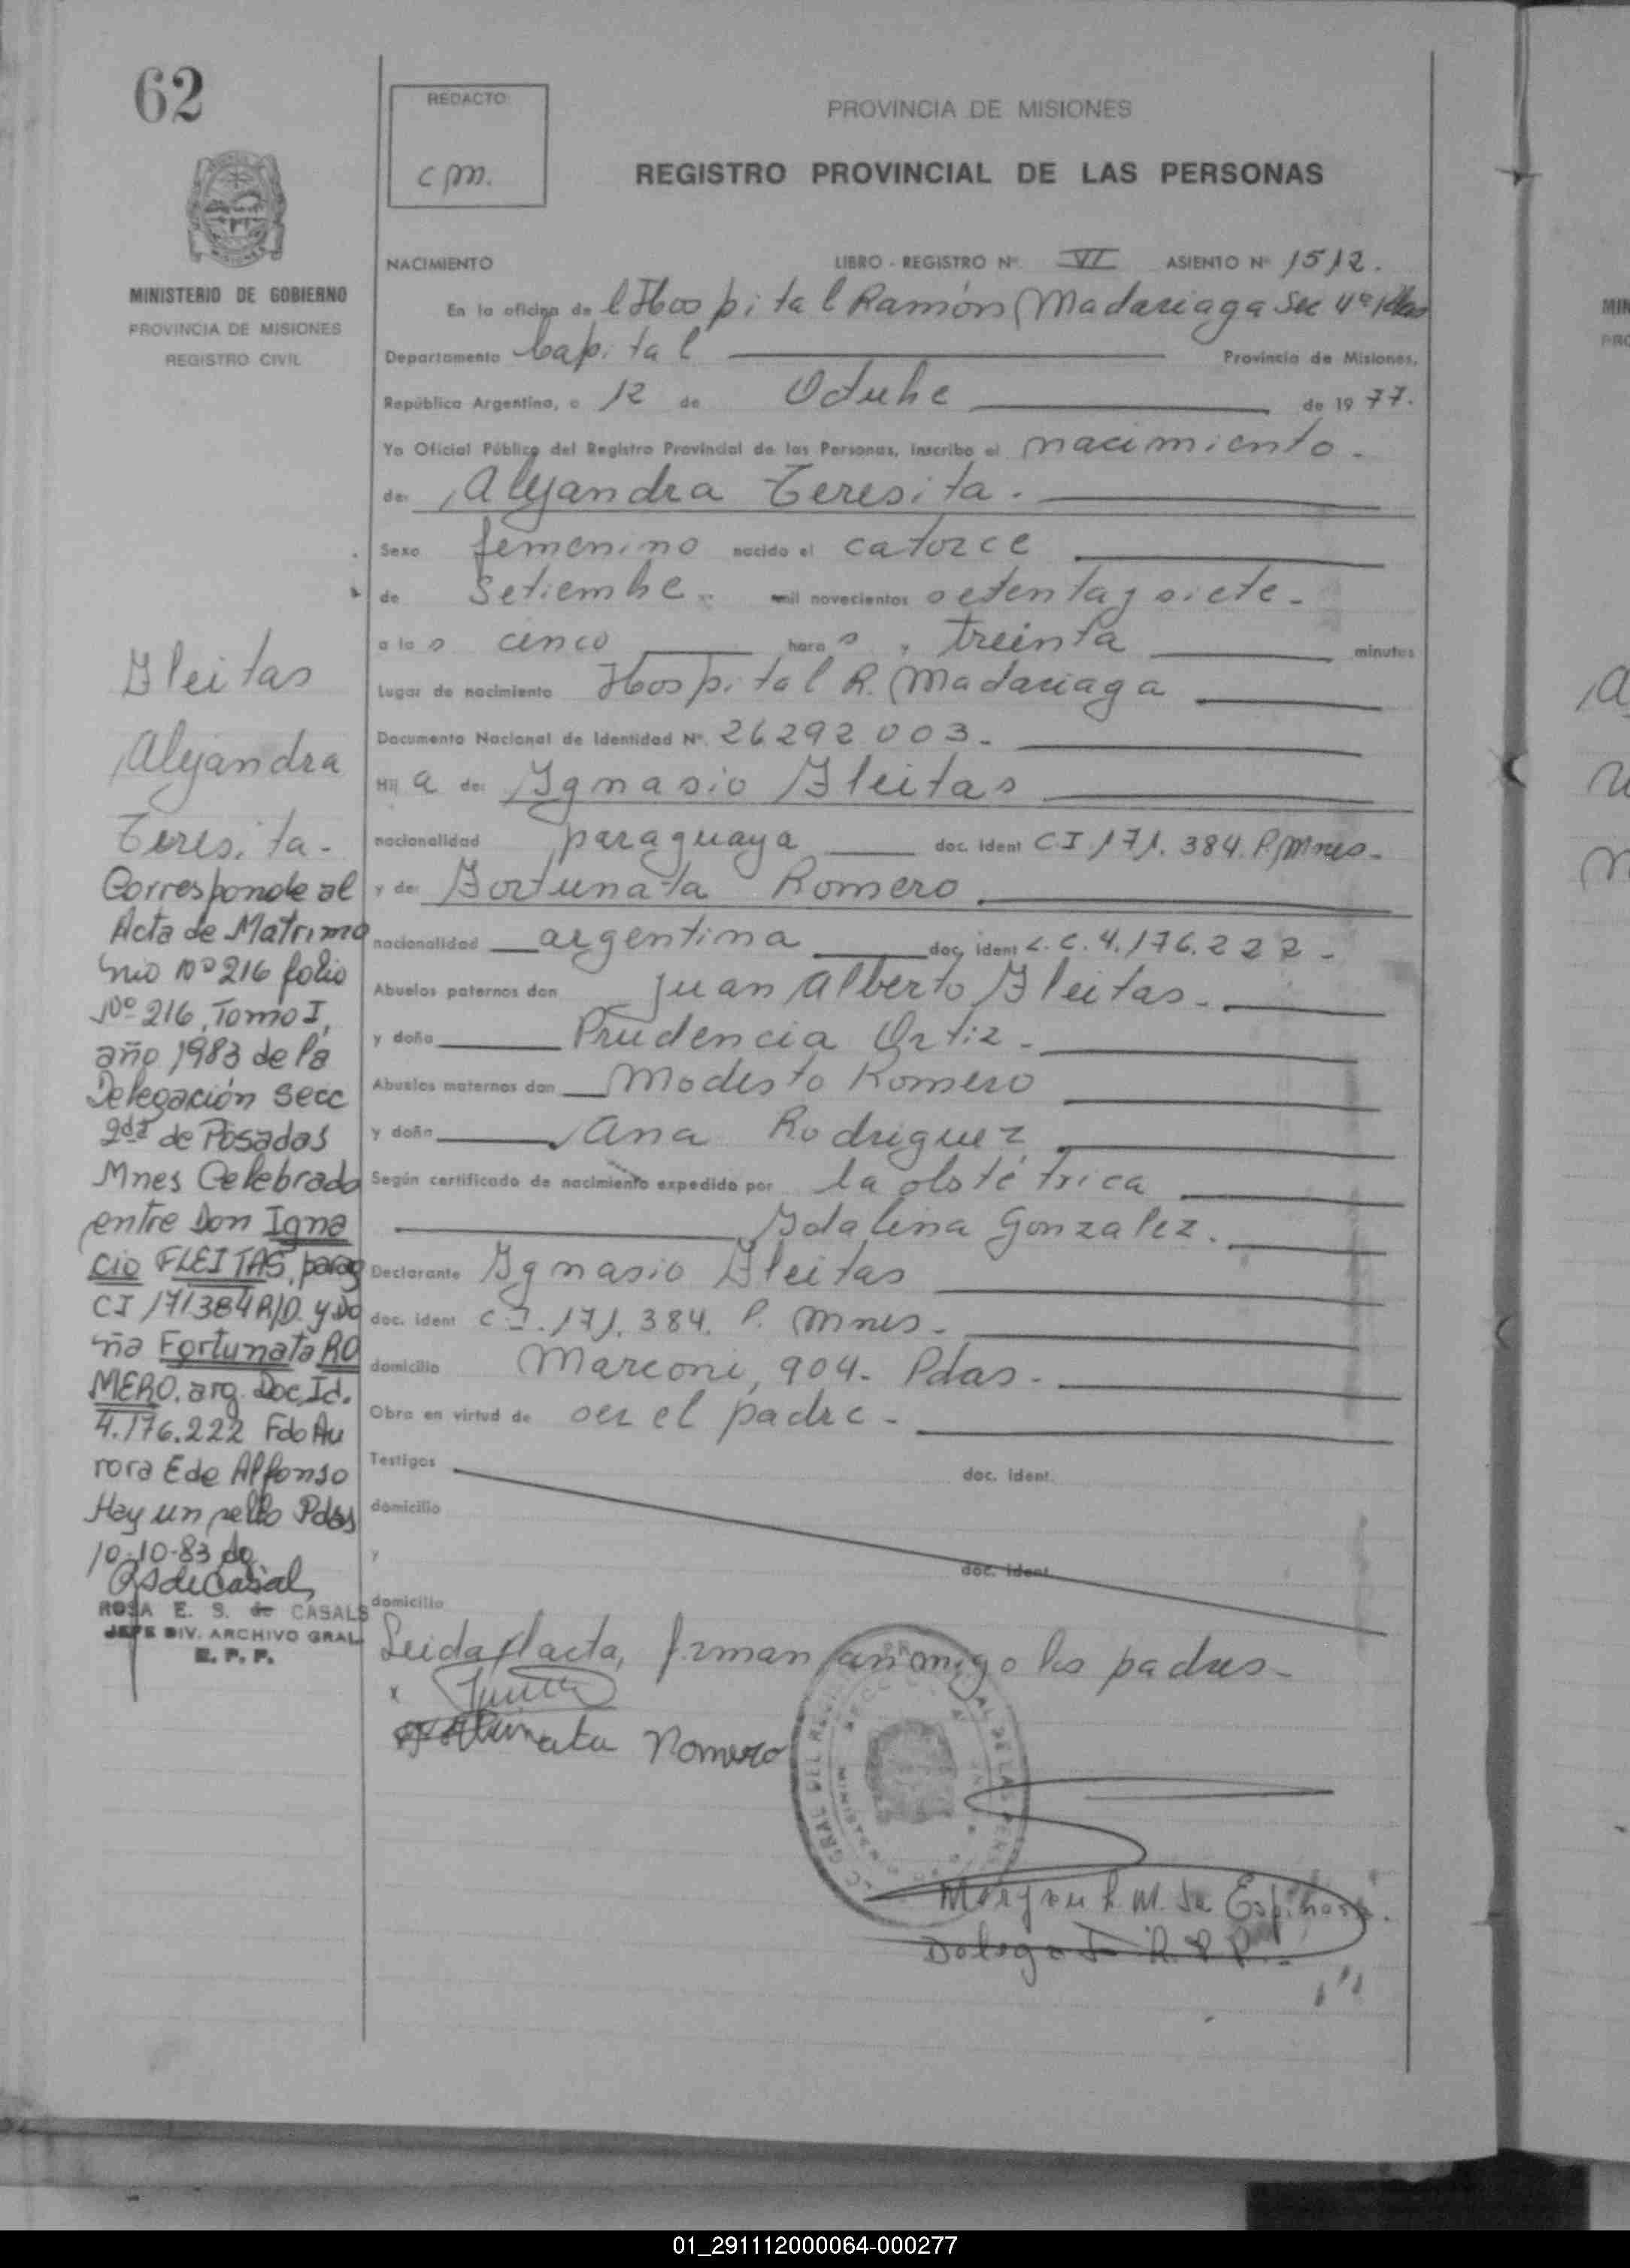 62
REDACTO
cpm.
PROVINCIA DE MISIONES
REGISTRO PROVINCIAL DE LAS PERSONAS
MINISTERIO DE GOBIERNO
PROVINCIA DE MISIONES
REGISTRO CIVIL
NACIMIENTO LIBRO - REGISTRO Nº VI ASIENTO Nº 1512.
En la oficina del Hospital Ramón Madariaga Sec 4ª Pdas
Departamento Capital Provincia de Misiones.
República Argentina, a 12 de Octubre de 1977.
Yo Oficial Público del Registro Provincial de las Personas, inscribo el nacimiento.
de: Alejandra Teresita.
Sexo femenino nacido el catorce
de Setiembre. mil novecientos setenta y siete-
a las cinco horas, treinta minutos
Lugar de nacimiento Hospital R. Madariaga
Documento Nacional de Identidad Nº 26292003-
Hija de: Ygnasio Fleitas
nacionalidad paraguaya doc. ident CI.171.384.P.Mnes-
y de: Fortunata Romero
nacionalidad argentina doc. ident L.C.4.176.222-
Abuelos paternos don Juan Alberto Fleitas-
y doña Prudencia Ortiz-
Abuelos maternos don Modesto Romero
y doña Ana Rodriguez
Según certificado de nacimiento expedido por la obstétrica
Ydalina Gonzalez.
Declarante Ygnasio Fleitas
doc. ident C.I.171.384. P. Mnes-
domicilio Marconi, 904- Pdas-
Obra en virtud de ser el padre-
Testigos doc. ident.
domicilio
y doc. ident.
domicilio
Leida el acta, firman conmigo los padres-
x
Fortunata Romero
L. M. de Espinosa.
Delegada R.P.P.
Fleitas
Alejandra
Teresita-
Corresponde al
Acta de Matrimo
nio Nº 216 folio
Nº 216, Tomo I,
año 1983 de la
Delegación Secc
2da de Posadas
Mnes Celebrado
entre Don Igna
cio FLEITAS, parag
CI 171384 R/D. y Do
ña Fortunata RO
MERO. arg. Doc. Id.
4.176.222 Fdo Au
rora E de Alfonso
Hay un sello Pdas
10-10-83
RSdeCasals
ROSA E. S. de CASALS
JEFE DIV. ARCHIVO GRAL
R. P. P.
01_291112000064-000277